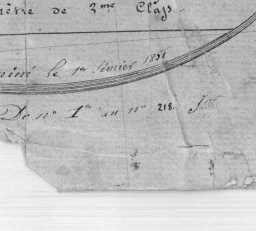 mètre de 2me Class
miné le 1er février 1831
De no 1er au no 218.